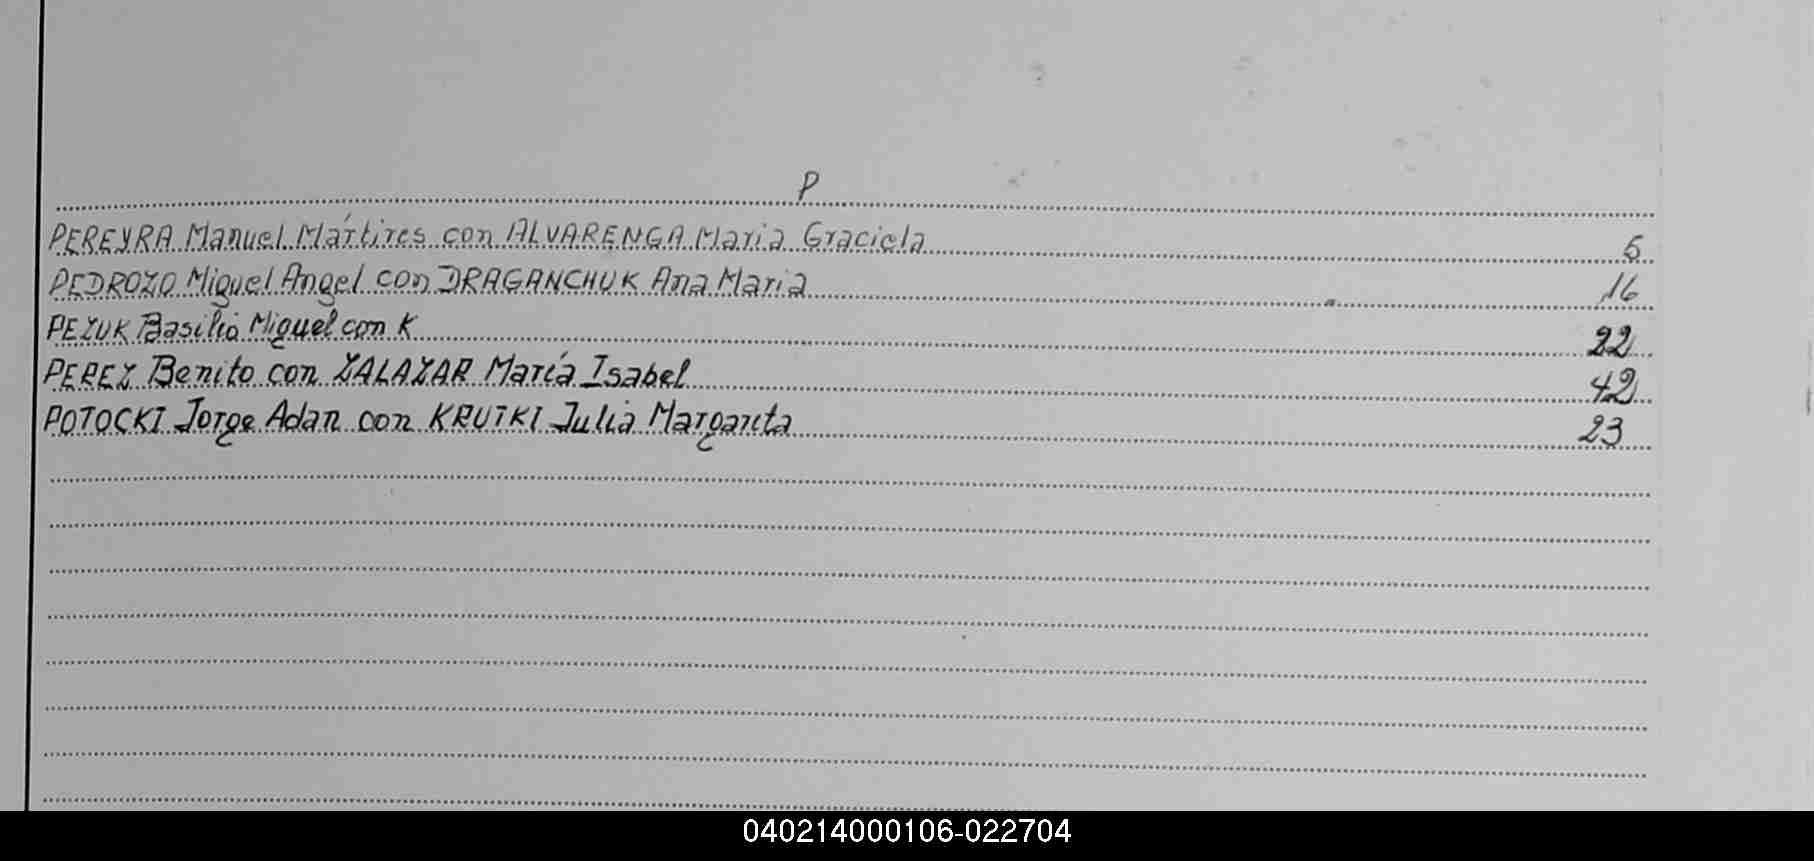 P
PEREYRA Manuel Mártires con ALVARENGA Maria Graciela 5
PEDROZO Miguel Angel con DRAGANCHUK Ana Maria 16
PEZUK Basilio Miguel con K 22
PEREZ Benito con ZALAZAR María Isabel 42
POTOCKI Jorge Adan con KRUTKI Julia Margarita 23
040214000106-022704